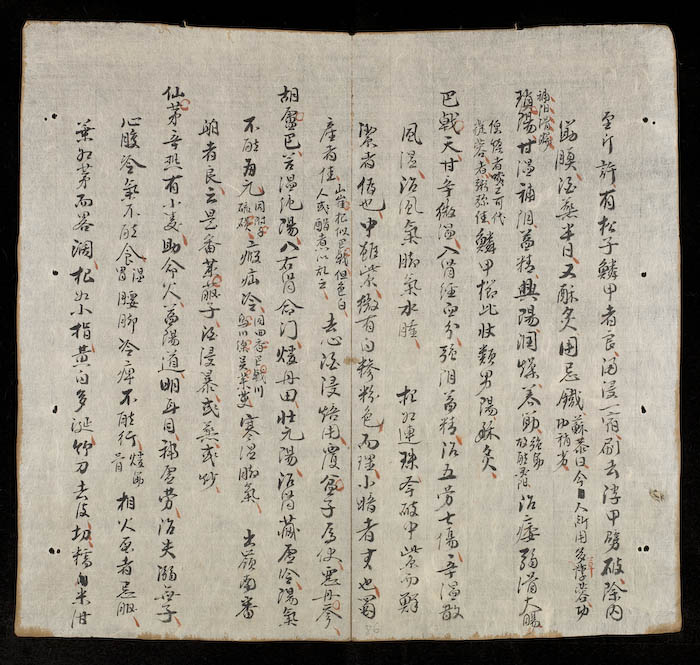 至斤許有松子鱗甲者良酒浸一宿刷去浮甲劈破除內
筋膜酒蒸半日又酥炙用忌鐵蘇恭曰今人所用多草蓯蓉功力稍劣
瑣陽補陰滑腸甘溫補陰益精興陽潤燥養筋強筋故能興陽治痿弱滑大腸
便燥者啖之可代蓯蓉者粥弥佳鱗甲櫛比狀類男陽酥炙
巴戟天甘辛微溫入腎經血分強陰益精治五勞七傷辛溫散
風濕治風氣腳氣水腫 根如連珠擊破中紫而鮮
潔者偽也中雖紫微有白糝粉色而理小暗者真也蜀
產者佳山葎根似巴戟但色白人或醋煮以亂之去心酒浸焙用覆盆子為使惡丹參
胡盧巴苦溫純陽入右腎命門煖丹田壯元陽治腎藏虛冷陽氣
不能歸元同附子硫磺瘕疝冷同茴香巴戟川烏川楝吳茱萸寒濕腳氣 出嶺南番
舶者良云是番萊菔子酒浸暴或蒸或炒
仙茅辛熱有小毒助命火益陽道明耳目補虛勞治失溺無子
心腹冷氣不能食溫胃腰腳冷痺不能行煖筋骨相火盛者忌服
葉如茅而略濶根如小指黃白多涎竹刀去皮切糯米泔